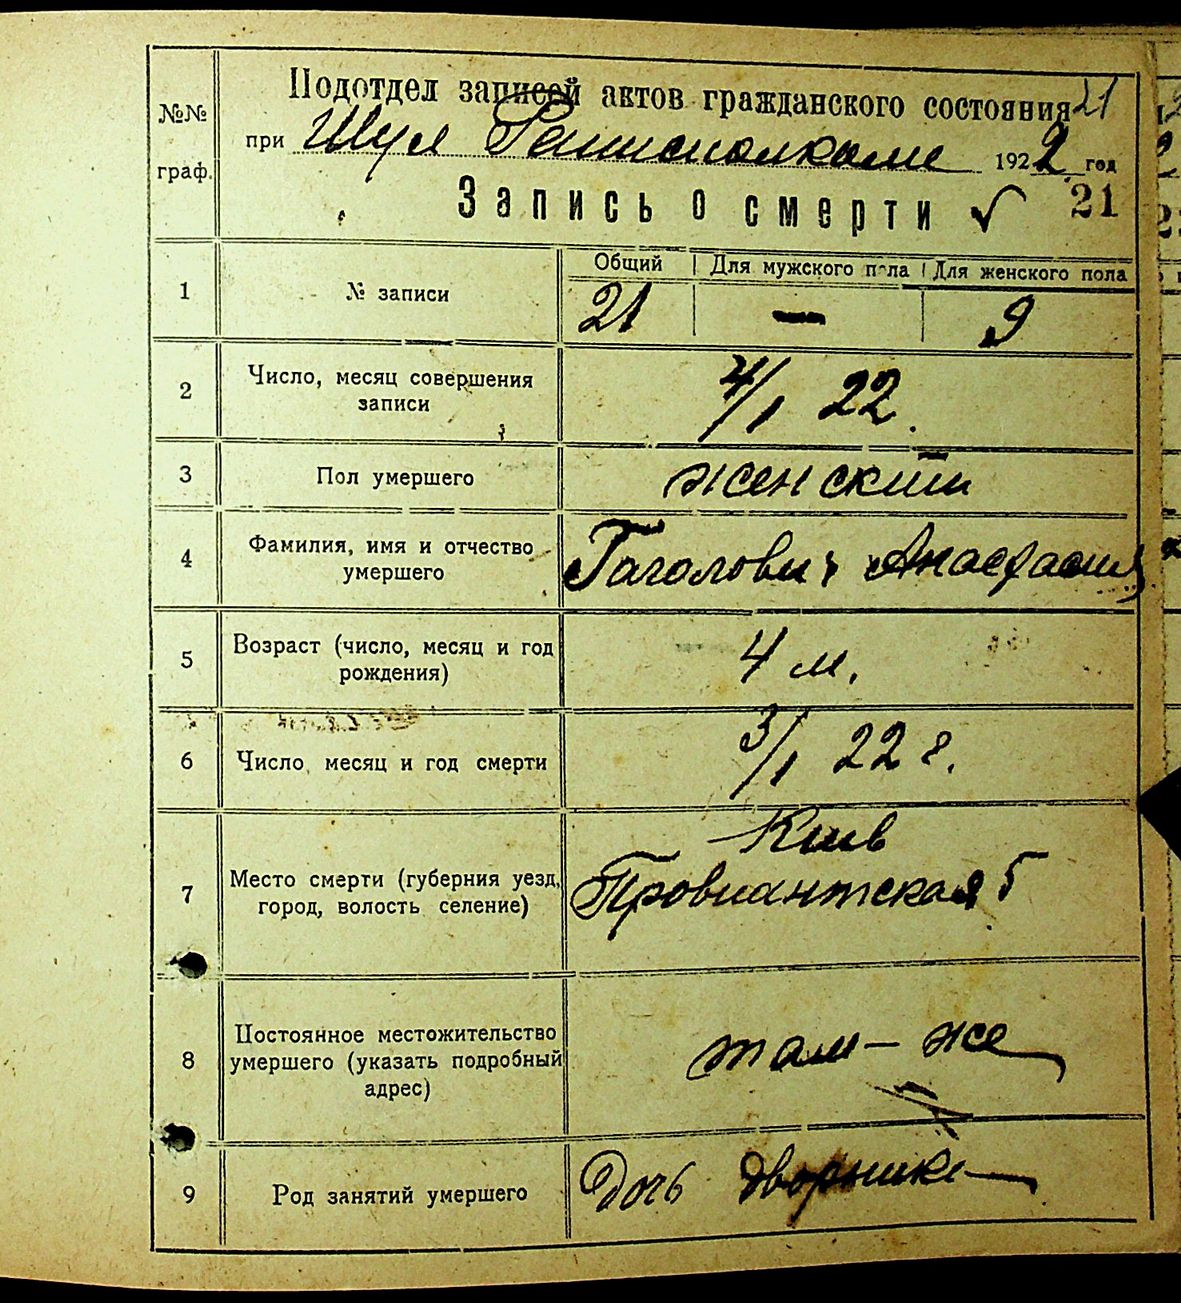 Подотдел записей актов гражданского состояния 21
№№ граф.
при Шул Рай 1922 год
Запись о смерти √ 21
Общий Для мужского пола Для женского пола
1 № записи 21 — 9
2 Число, месяц совершения
записи
4/1 22.
3 Пол умершего женский
4 Фамилия, имя и отчество
умершего
Гаголович Анастасия
5 Возраст (число, месяц и год
рождения)
4 м.
6 Число, месяц и год смерти 3/1 22 г.
7 Место смерти (губерния уезд,
город, волость селение)
Киев
Провиантская 5
8 Постоянное местожительство
умершего (указать подробный
адрес)
там - же
9 Род занятий умершего Дочь дворника